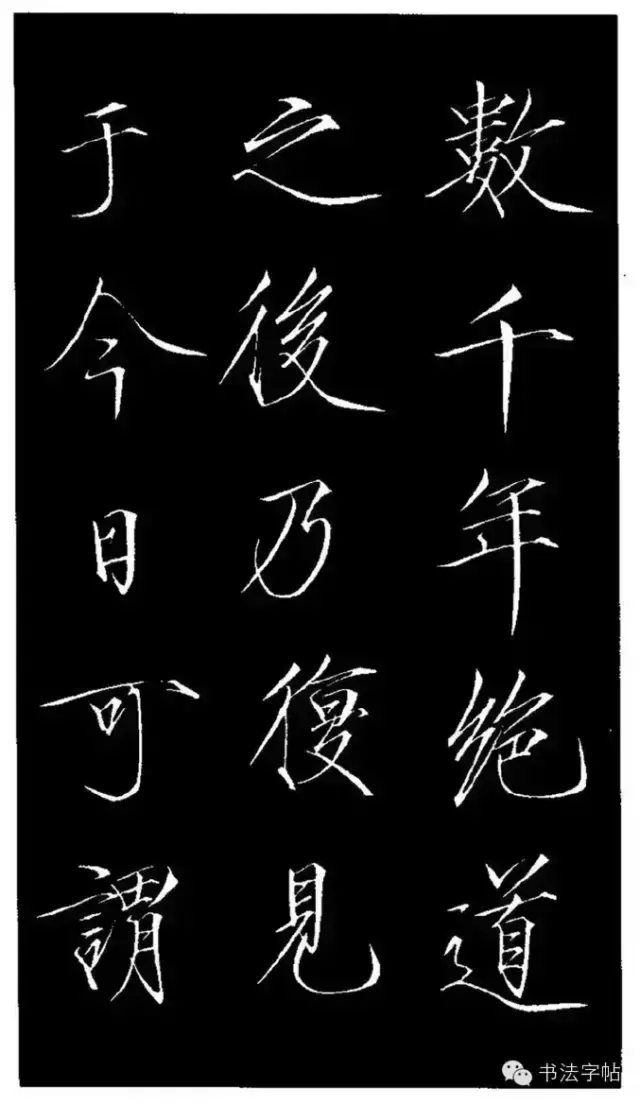 數千年絶道
之後乃復見
于今日可謂
书法字帖